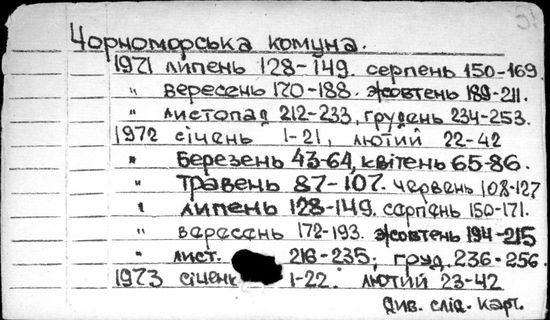 Чорноморська комуна.
1971 липень 128-149. серпень 150-169.
" вересень 170-188. жовтень 189-211.
" листопад 212-233, грудень 234-253.
1972 січень 1-21, лютий 22-42
" березень 43-64, квітень 65-86.
" травень 87-107. червень 108-127
" липень 128-149. серпень 150-171.
" вересень 172-193. жовтень 194-215
" лист. 216-235; груд. 236-256.
1973 січень 1-22. лютий 23-42
див. слід. карт.